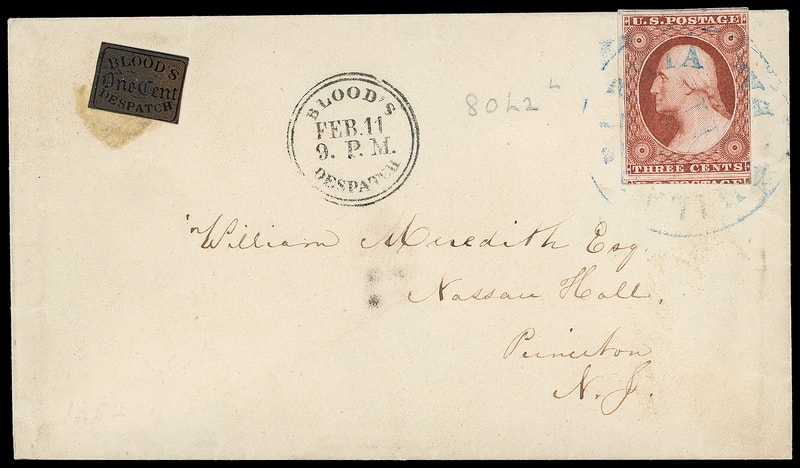 BLOOD'S
One Cent
DESPATCH
BLOOD'S
FEB. 11
9. P. M.
DESPATCH
80L2 L
U.S. POSTAGE
THREE CENTS
U.S. POSTAGE
William Meredith Esq.
Nassau Hall.
Princeton
N. J.